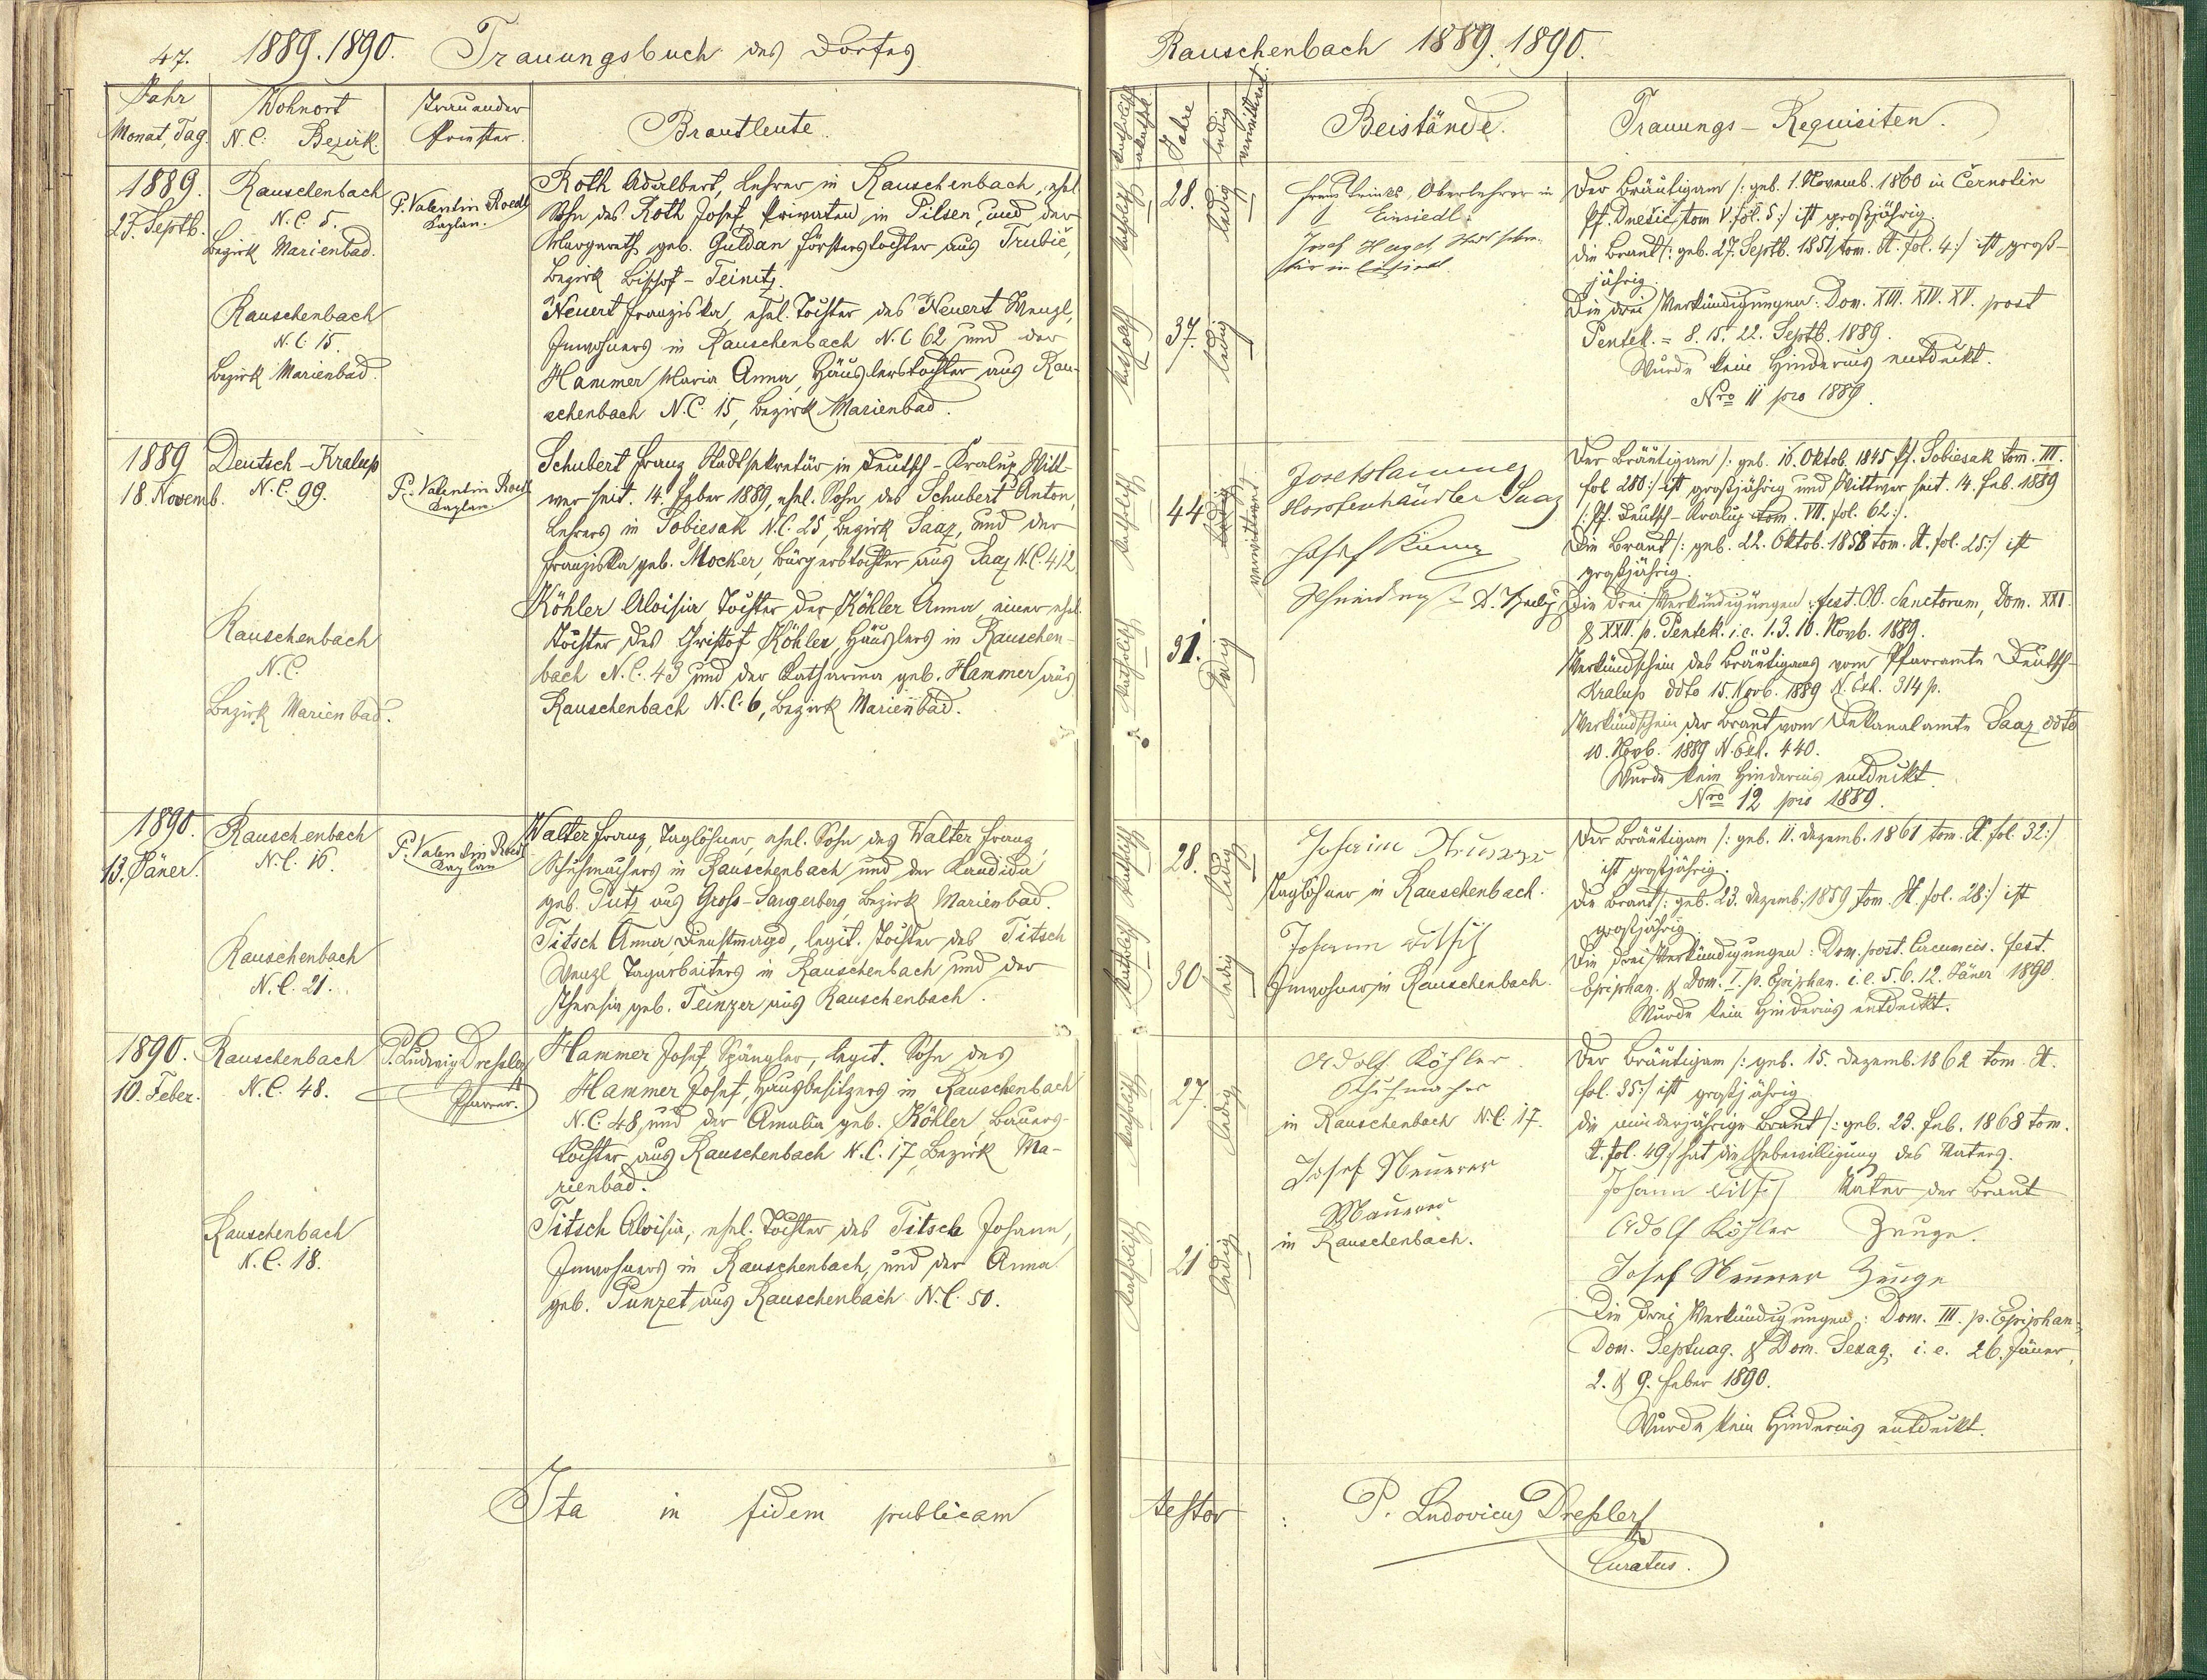 47. 1889. 1890. Trauungsbuch des Dorfes
Jahr
Monat, Tag.
Wohnort
N. C. Bezirk.
Trauender
Priester.
Brautleute.
1889.
27. Septb.
Rauschenbach
N. C. 5.
Bezirk Marienbad.
P. Valentin Roedl
Kaplan.
Roth Adalbert, Lehrer in Rauschenbach, ehel.
Sohn des Roth Josef, Privaten in Pilsen, und der
Margareth, geb. Guldan Försterstochter aus Trubič,
Bezirk Bischof-Teinitz.
Rauschenbach
N. C. 15.
Bezirk Marienbad.
Neuert Franziska, ehel. Tochter des Neuert Wenzl,
Inwohners in Rauschenbach N. C 62 und der
Hammer Maria Anna, Häuslerstochter aus Rau-
schenbach N. C. 15, Bezirk Marienbad.
1889
18. Novemb.
Deutsch-Kralup
N. C. 99.
P. Valentin Roedl
Kaplan.
Schubert Franz Stadtsekretär in Deutsch-Kralup, Witt-
wer seit. 14. Feber 1889, ehel. Sohn des Schubert Anton,
Lehrers in Sobiesak N. C. 25, Bezirk Saaz, und der
Franziska geb. Mocker, Bürgerstochter aus Saaz N. C. 412
Rauschenbach
N. C.
Bezirk Marienbad.
Köhler Aloisia Tochter der Köhler Anna einer ehel.
Tochter des Christof Köhler, Häuslers in Rauschen-
bach N. C. 43 und der Katharina geb. Hammer aus
Rauschenbach N. C. 6, Bezirk Marienbad.
1890.
13. Jäner.
Rauschenbach
N. C. 16.
P. Valentin Roedl
Kaplan
Walter Franz, Taglöhner, ehel. Sohn des Walter Franz,
Schuhmachers in Rauschenbach und der Kandida
geb. Putz aus Gross-Sangerberg, Bezirk Marienbad.
Rauschenbach
N. C. 21.
Titsch Anna, Dienstmagd, legit. Tochter des Titsch
Wenzl Tagarbeiters in Rauschenbach und der
Theresia geb. Teinzer aus Rauschenbach.
1890.
10. Feber.
Rauschenbach
N. C. 48.
P. Ludwig Dreßler
Pfarrer.
Hammer Josef, Spängler, legit. Sohn des
Hammer Josef, Hausbesitzers in Rauschenbach
N. C. 48, und der Amalia geb. Köhler, Bauers-
tochter aus Rauschenbach N. C. 17, Bezirk Ma-
rienbad.
Rauschenbach
N. C. 18.
Titsch Aloisia, ehel. Tochter des Titsch Johann,
Inwohners in Rauschenbach, und der Anna
geb. Punzet aus Rauschenbach N. C. 50.
Ita in fidem publicam
Rauschenbach 1889. 1890.
Katholisch
akathol.
Jahre
ledig
verwittwet
Beistände.
Trauungs-Requisiten.
katholisch 28. ledig
katholisch 37. ledig
Oberlehrer in
Einsiedl.
Josef
in Einsiedl.
Der Bräutigam /: geb. 1. Novemb. 1860 in Černotin
Pf. Dnešic, tom V. fol. 5:/ ist großjährig.
Die Braut /: geb. 27. Septb. 1851 tom. A. fol. 4:/ ist groß-
jährig.
Die drei Verkündigungen: Dom. XIII. XIV. XV. post
Pentek. = 8. 15. 22. Septb. 1889.
Wurde kein Hinderniß entdeckt.
Nro 11 pro 1889.
katholisch 44. ledig verwittwet
katholisch 31. ledig
Josef Hammer
Hopfenhändler Saaz
Josef
Schneider
Der Bräutigam /: geb. 16. Oktob. 1845 Pf. Sobiesak tom. III.
fol. 280:/ ist großjährig und Wittwer seit. 14. Feb. 1889
/: Pf. Deutsch-Kralup tom. VII. fol. 62:/.
Die Braut /: geb. 22. Oktob. 1858 tom. A. fol. 25:/ ist
großjährig.
Die drei Verkündigungen: fest. OO. Sanctorum, Dom. XXI.
& XXII. p. Pentek. i. e. 1. 3. 10. Novb. 1889.
Verkündschein des Bräutigams vom Pfarramte Deutsch-
Kralup ddto 15. Novb. 1889 N. Exh. 314 p.
Verkündschein der Braut vom Dekanalamte Saaz ddto
10. Novb. 1889 N. Exh. 440.
Wurde kein Hinderniß entdeckt.
Nro 12 pro 1889.
katholisch 28. ledig
katholisch 30. ledig
Johann
Taglöhner in Rauschenbach.
Johann Titsch
Inwohner in Rauschenbach.
Der Bräutigam /: geb. 11. Dezemb. 1861 tom. A. fol. 32:/
ist großjährig.
Die Braut /: geb. 23. Dezemb. 1859 tom. A. fol. 28:/ ist
großjährig.
Die drei Verkündigungen: Dom. post. Circumcis. fest.
Epiphan. & Dom. I. p. Epiphan. i. e. 5. 6. 12. Jäner 1890
Wurde kein Hinderniß entdeckt.
katholisch 27. ledig
katholisch 21 ledig
Adolf Köhler
Schuhmacher
in Rauschenbach N. C. 17.
Josef Neuerer
Maurer
in Rauschenbach.
Der Bräutigam /: geb. 15. Dezemb. 1862 tom. A.
fol. 35:/ ist großjährig
die minderjährige Braut /: geb. 23. Feb. 1868 tom.
A. fol. 49:/ hat die Ehebewilligung des Vaters.
Johann Titsch Vater der Braut
Adolf Köhler Zeuge.
Josef Neuerer Zeuge
Die drei Verkündigungen: Dom. III. p. Epiphan.,
Dom. Septuag. & Dom. Sexag. i. e. 26. Jäner,
2. & 9. Feber 1890.
Wurde kein Hinderniß entdeckt.
testor : P. Ludovicus Dreßler
Curatus.